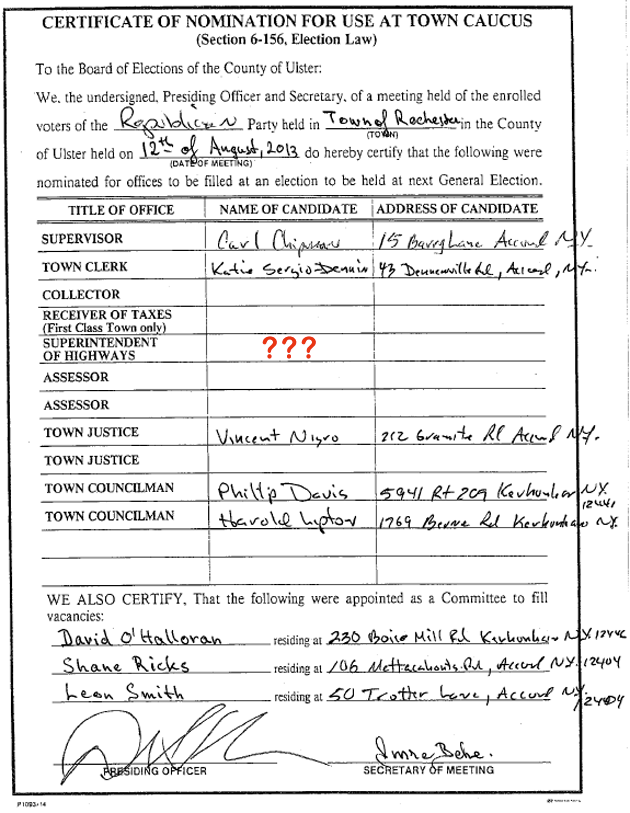 CERTIFICATE OF NOMINATION FOR USE AT TOWN CAUCUS
(Section 6-156, Election Law)
To the Board of Elections of the County of Ulster:
We, the undersigned, Presiding Officer and Secretary, of a meeting held of the enrolled
voters of the Republican Party held in Town of Rochester in the County
(TOWN)
of Ulster held on 12th of August, 2013 do hereby certify that the following were
(DATE OF MEETING)
nominated for offices to be filled at an election to be held at next General Election.
TITLE OF OFFICE NAME OF CANDIDATE ADDRESS OF CANDIDATE
SUPERVISOR Carl Chipman 15 Accord N.Y.
TOWN CLERK Katie Sergio-Dennin 43 Rd, Accord, N.Y.
COLLECTOR
RECEIVER OF TAXES
(First Class Town only)
SUPERINTENDENT
OF HIGHWAYS ???
ASSESSOR
ASSESSOR
TOWN JUSTICE Vincent Nigro 212 Granite Rd Accord N.Y.
TOWN JUSTICE
TOWN COUNCILMAN Philip Davis 5941 Rt 209 Kerhonkson N.Y.
12446
TOWN COUNCILMAN Harold Lipton 1769 Berme Rd Kerhonkson N.Y.
WE ALSO CERTIFY, That the following were appointed as a Committee to fill
vacancies:
David O'Halloran residing at 230 Boice Mill Rd Kerhonkson N.Y. 12446
Shane Ricks residing at 106 Mettacahonts Rd, Accord N.Y. 12404
Leon Smith residing at 50 Trotter Lane, Accord N.Y.
12404
PRESIDING OFFICER
Imre Beke.
SECRETARY OF MEETING